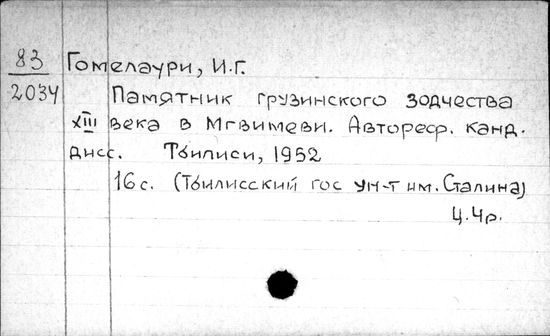 83 Гомелаури, И.Г.
2034 Памятник грузинского зодчества
XIII века в Мгвимеви. Автореф. канд.
дисс. Тбилиси, 1952
16 с. (Тбилисский гос ун-т им. Сталина)
Ц.Чр.